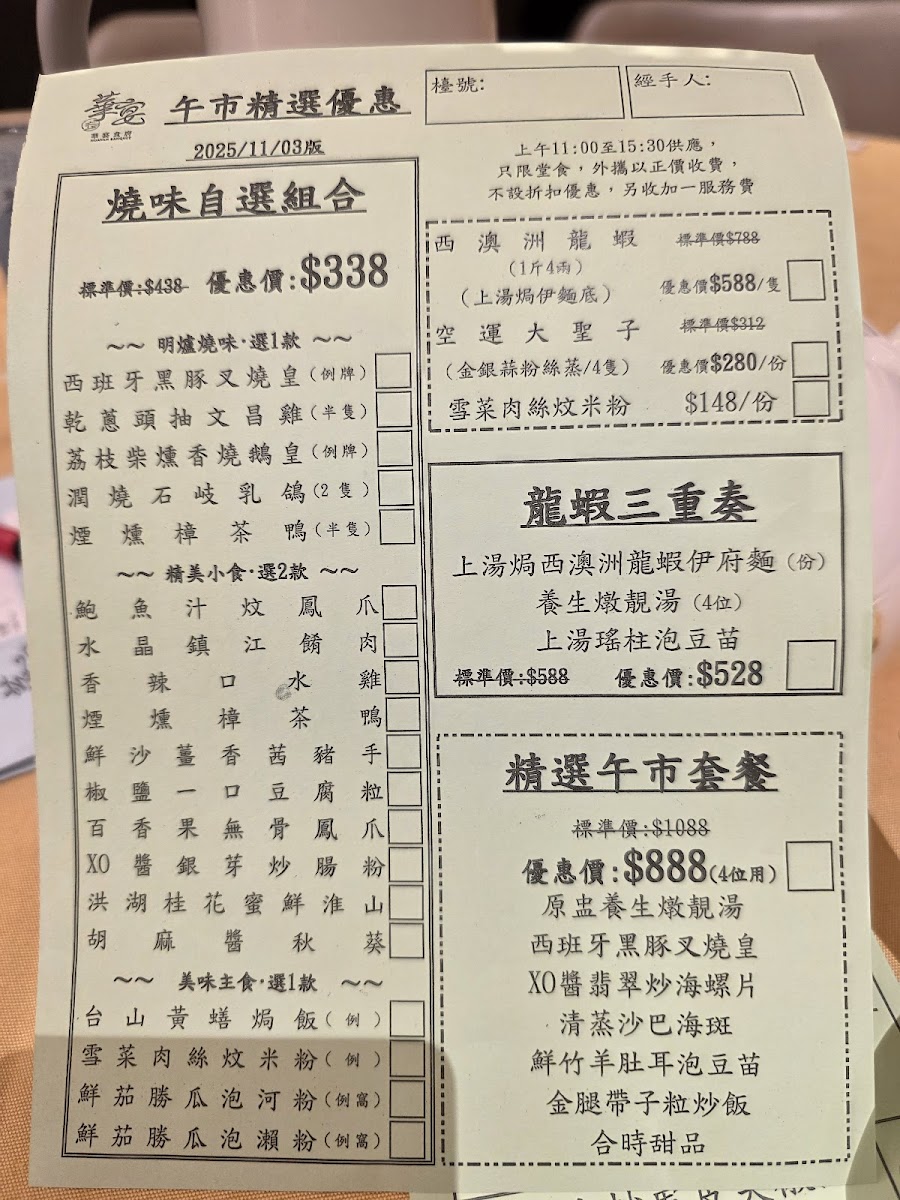 華宴
華宴食府
午市精選優惠
2025/11/03版
檯號:
經手人:
上午11:00至15:30供應，
只限堂食，外攜以正價收費，
不設折扣優惠，另收加一服務費
燒味自選組合
標準價:$438 優惠價:$338
~~ 明爐燒味·選1款 ~~
西班牙黑豚叉燒皇(例牌)
乾蔥頭抽文昌雞(半隻)
荔枝柴燻香燒鵝皇(例牌)
潤燒石岐乳鴿(2隻)
煙燻樟茶鴨(半隻)
~~ 精美小食·選2款 ~~
鮑魚汁炆鳳爪
水晶鎮江餚肉
香辣口水雞
煙燻樟茶鴨
鮮沙薑香茜豬手
椒鹽一口豆腐粒
百香果無骨鳳爪
XO醬銀芽炒腸粉
洪湖桂花蜜鮮淮山
胡麻醬秋葵
~~ 美味主食·選1款 ~~
台山黃鱔焗飯(例)
雪菜肉絲炆米粉(例)
鮮茄勝瓜泡河粉(例窩)
鮮茄勝瓜泡瀨粉(例窩)
西澳洲龍蝦 標準價$788
(1斤4兩)
(上湯焗伊麵底) 優惠價$588/隻
空運大聖子 標準價$312
(金銀蒜粉絲蒸/4隻) 優惠價$280/份
雪菜肉絲炆米粉 $148/份
龍蝦三重奏
上湯焗西澳洲龍蝦伊府麵(份)
養生燉靚湯(4位)
上湯瑤柱泡豆苗
標準價:$588 優惠價:$528
精選午市套餐
標準價:$1088
優惠價:$888(4位用)
原盅養生燉靚湯
西班牙黑豚叉燒皇
XO醬翡翠炒海螺片
清蒸沙巴海斑
鮮竹羊肚耳泡豆苗
金腿帶子粒炒飯
合時甜品